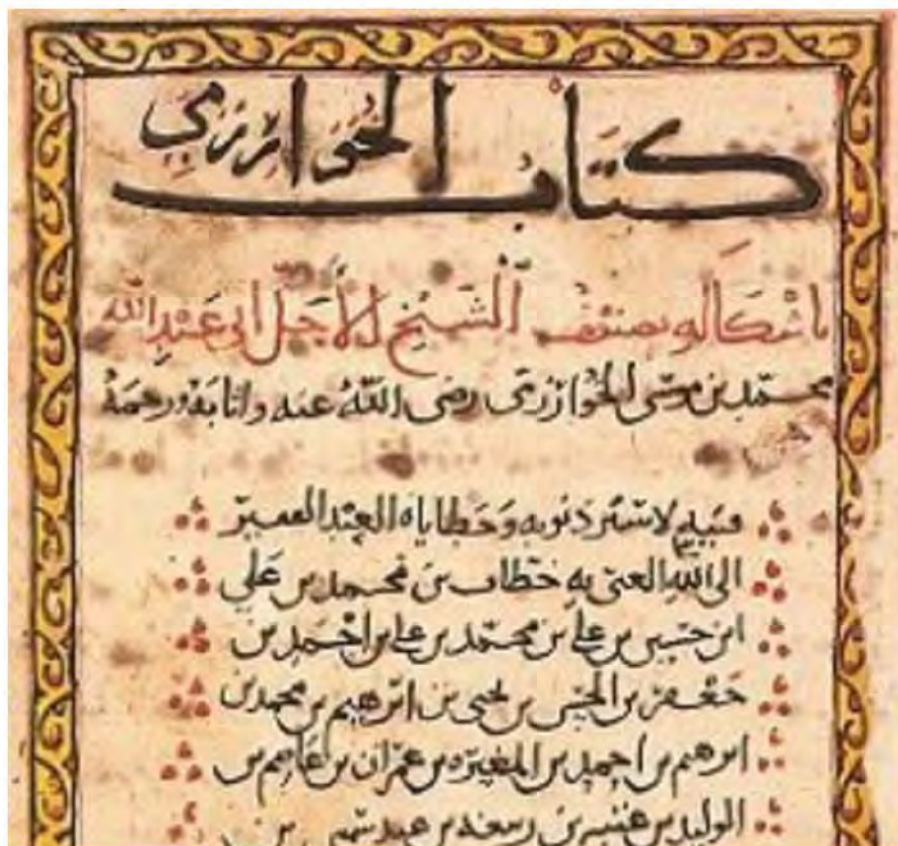 كتاب الخوارزمي
باشكاله تصنيف الشيخ الاجل ابى عبد الله
محمد بن موسى الخوارزمى رضى الله عنه واثابه ورحمه
لاستر ذنوبه وخطاياه العبد الفقير
الى الله الغنى به خطاب بن محمد بن على
ابن حسين بن على بن محمد بن على بن احمد بن
جعفر بن الحسن بن يحيى بن ابرهيم بن محمد بن
ابرهيم بن احمد بن المغيرة بن عمران بن عاصم بن
الوليد بن بن بن عبد بن